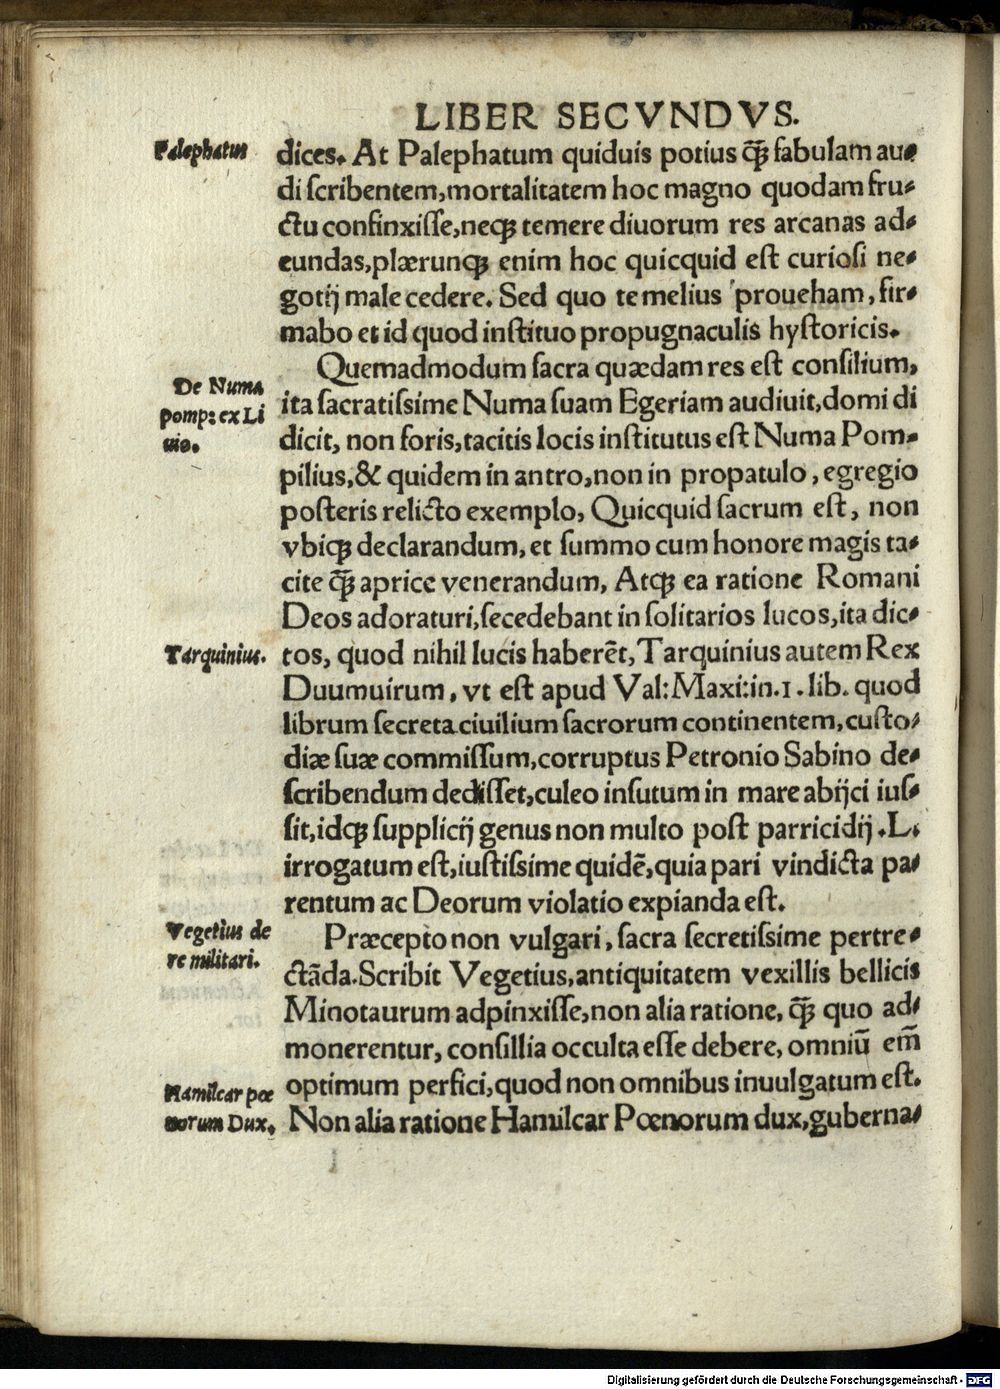 LIBER SECVNDVS.
Palephatus
dices. At Palephatum quiduis potius ꝙ̃ fabulam au⸗
di ſcribentem,mortalitatem hoc magno quodam fru⸗
ctu confinxiſſe,neqꝫ temere diuorum res arcanas ad⸗
eundas,plærunqꝫ enim hoc quicquid eſt curioſi ne⸗
gotij male cedere. Sed quo te melius proueham, fir⸗
mabo et id quod inſtituo propugnaculis hyſtoricis.
De Numa
pomp: ex Li
uio.
Quemadmodum ſacra quædam res eſt conſilium,
ita ſacratiſsime Numa ſuam Egeriam audiuit,domi di
dicit, non foris,tacitis locis inſtitutus eſt Numa Pom⸗
pilius,& quidem in antro,non in propatulo, egregio
poſteris relicto exemplo, Quicquid ſacrum eſt, non
vbiqꝫ declarandum, et ſummo cum honore magis ta⸗
cite ꝙ̃ aprice venerandum, Atqꝫ ea ratione Romani
Deos adoraturi,ſecedebant in ſolitarios lucos,ita dic⸗
Tarquinius.
tos, quod nihil lucis haberẽt, Tarquinius autem Rex
Duumuirum, vt eſt apud Val: Maxi:in.1. lib. quod
librum ſecreta ciuilium ſacrorum continentem, cuſto⸗
diæ ſuæ commiſſum,corruptus Petronio Sabino de⸗
ſcribendum dediſſet,culeo inſutum in mare abijci iuſ⸗
ſit,idqꝫ ſupplicij genus non multo poſt parricidij .L.
irrogatum eſt,iuſtiſsime quidẽ,quia pari vindicta pa⸗
rentum ac Deorum violatio expianda eſt.
Vegetius de
re militari.
Præcepto non vulgari, ſacra ſecretiſsime pertre⸗
ctãda.Scribit Vegetius,antiquitatem vexillis bellicis
Minotaurum adpinxiſſe,non alia ratione, ꝙ̃ quo ad⸗
monerentur, conſillia occulta eſſe debere, omniũ em̃
Hamilcar pœ
norum Dux.
optimum perfici,quod non omnibus inuulgatum eſt.
Non alia ratione Hamilcar Pœnorum dux,guberna⸗
Digitalisierung gefördert durch die Deutsche Forschungsgemeinschaft - DFG